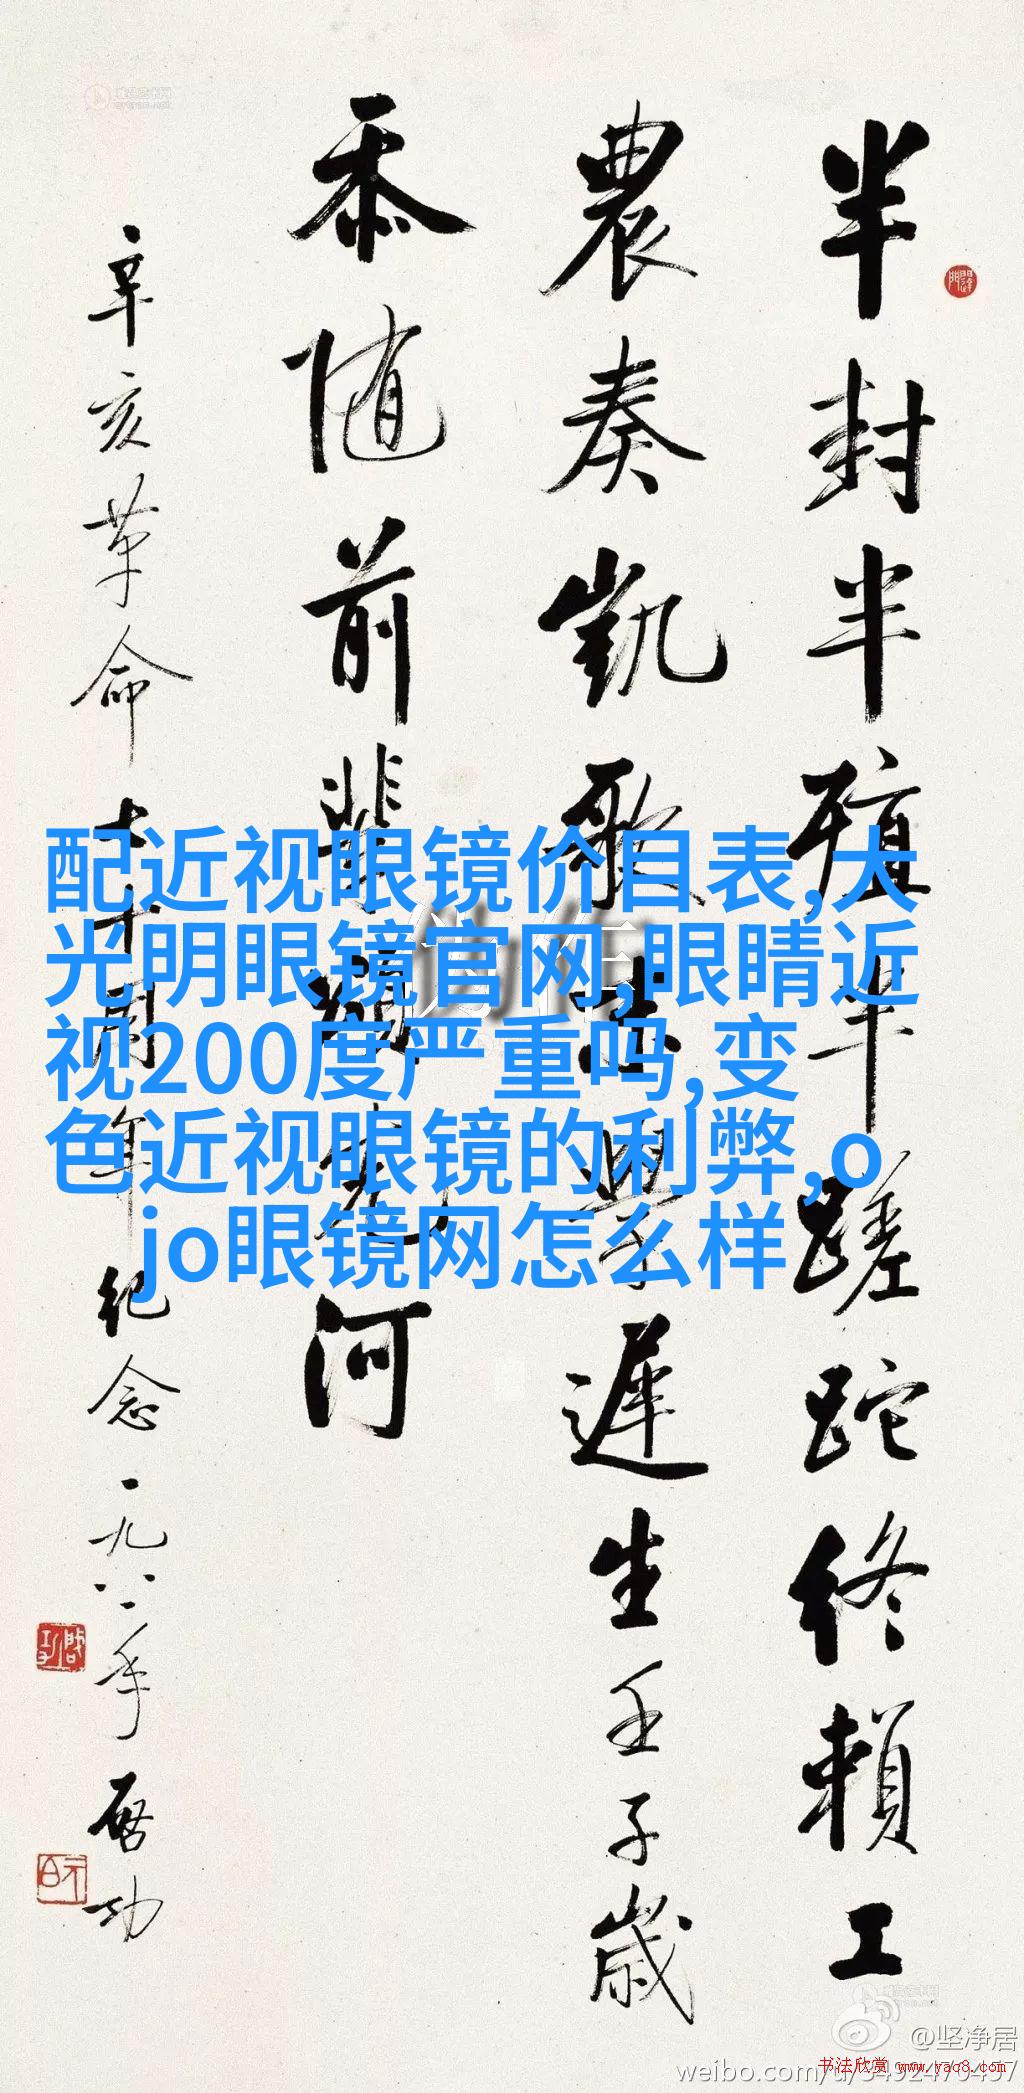 半封半殖半蹉跎終賴工
農奏凱歌
學遲生壬子歲
忝随前輩
河
辛亥革命七十周年纪念一九八一年
启功
配近视眼镜价目表,大
光明眼镜官网,眼睛近
视200度严重吗,变
色近视眼镜的利弊,o
jo眼镜网怎么样
@坚净居
书法欣赏 www.yac8.com